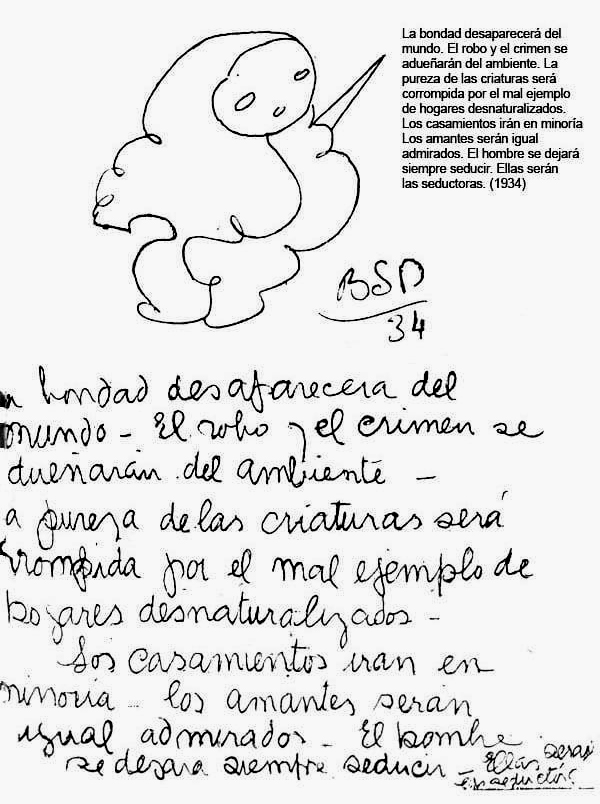 La bondad desaparecerá del
mundo. El robo y el crimen se
adueñarán del ambiente. La
pureza de las criaturas será
corrompida por el mal ejemplo
de hogares desnaturalizados.
Los casamientos irán en minoría
Los amantes serán igual
admirados. El hombre se dejará
siempre seducir. Ellas serán
las seductoras. (1934)
BSP
34
a bondad desaparecera del
mundo - El robo y el crimen se
dueñarán del ambiente -
a pureza de las criaturas será
rrompida por el mal ejemplo de
hogares desnaturalizados -
Los casamientos iran en
minoria - los amantes seran
igual admirados - El hombre
se dejara siempre seducir - Ellas seran
las seductor